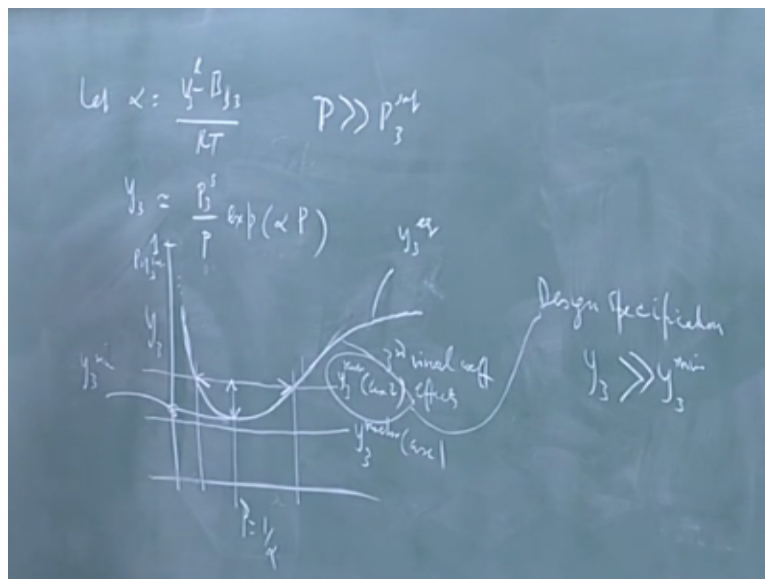 Let α = (v₃ˡ - B₃₃) / RT    P >> P₃ˢᵃᵗ
y₃ ≃ P₃ˢ / P exp(α P)
y₃ᵉᵠ
y₃
y₃ᵐⁱⁿ
3ʳᵈ virial coeff
effects
y₃ (case 2)
y₃ (case 1
P = 1/α
Design Specification
y₃ >> y₃ᵐⁱⁿ